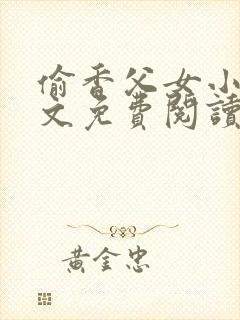 偷香父女小
文免費閱讀
黃金忠